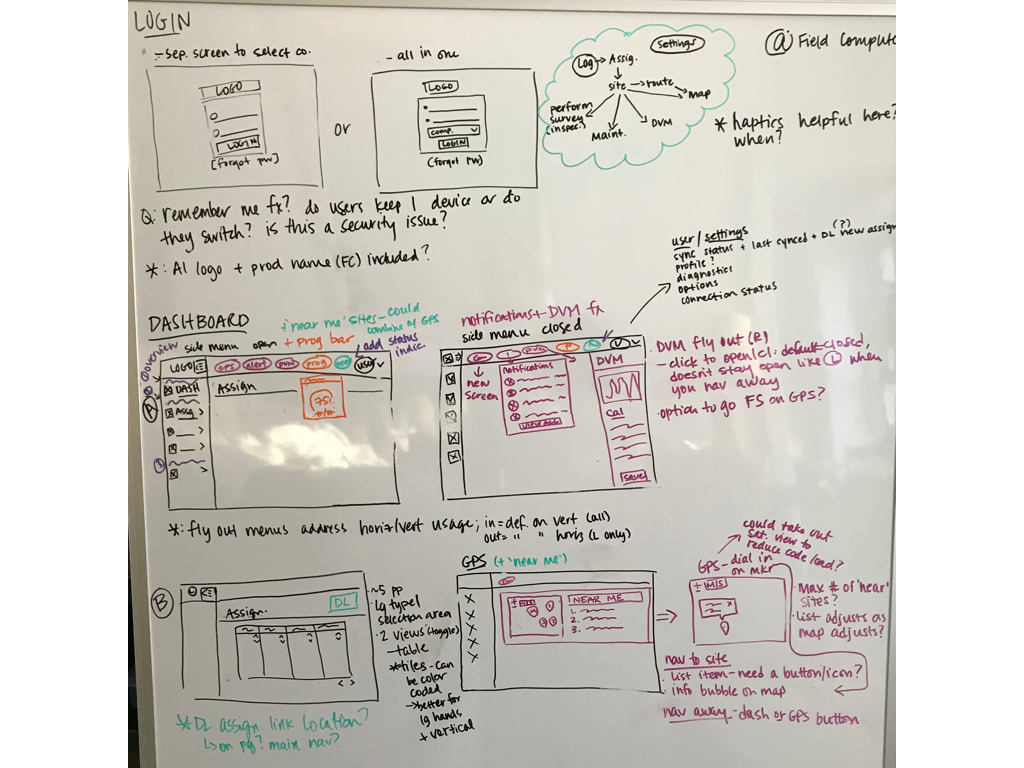 LOGIN
- sep. screen to select co.
LOGO
LOGIN
[forgot pw]
or
- all in one
LOGO
comp. v
LOGIN
(forgot pw)
Settings
Log → Assig.
site → route
map
perform
survey
(inspec.)
Maint.
DVM
@ Field Compute
* haptics helpful here?
when?
Q: remember me fx? do users keep 1 device or do
they switch? is this a security issue?
*: AI logo + prod name (FC) included?
user/settings
sync status + last synced + DL new assign
(?)
profile?
diagnostics
options
connection status
DASHBOARD
+ 'near me' sites - could
combine w/ GPS
overview
side menu open
+ prog bar
add status
indic.
LOGO
GPS
alert
DVM
prog
user
DASH
Assig >
Assign
75%
A
3
notifications + DVM fx
side menu closed
DVM
P
new
screen
notifications
view all
DVM
cal
save
· DVM fly out (R)
- click to open/cl: default=closed,
doesn't stay open like L when
you nav away
· option to go FS on GPS?
*: fly out menus address horiz/vert usage; in = def. on vert (all)
out = " " horiz (L only)
B
Assign.
DL
~5 pp
· lg type/
selection area
· 2 views (toggle)
- table
* tiles - can
be color
coded
→ better for
lg hands
+ vertical
< >
* DL assign link location?
↳ on pg? main nav?
GPS (+ 'near me')
NEAR ME
1.
2.
3.
could take out
sat. view to
reduce code load?
GPS - dial in
on mkr
± M|S
· Max # of 'near'
sites?
· List adjusts as
map adjusts?
nav to site
· list item - need a button/icon?
· info bubble on map
nav away - dash or GPS button